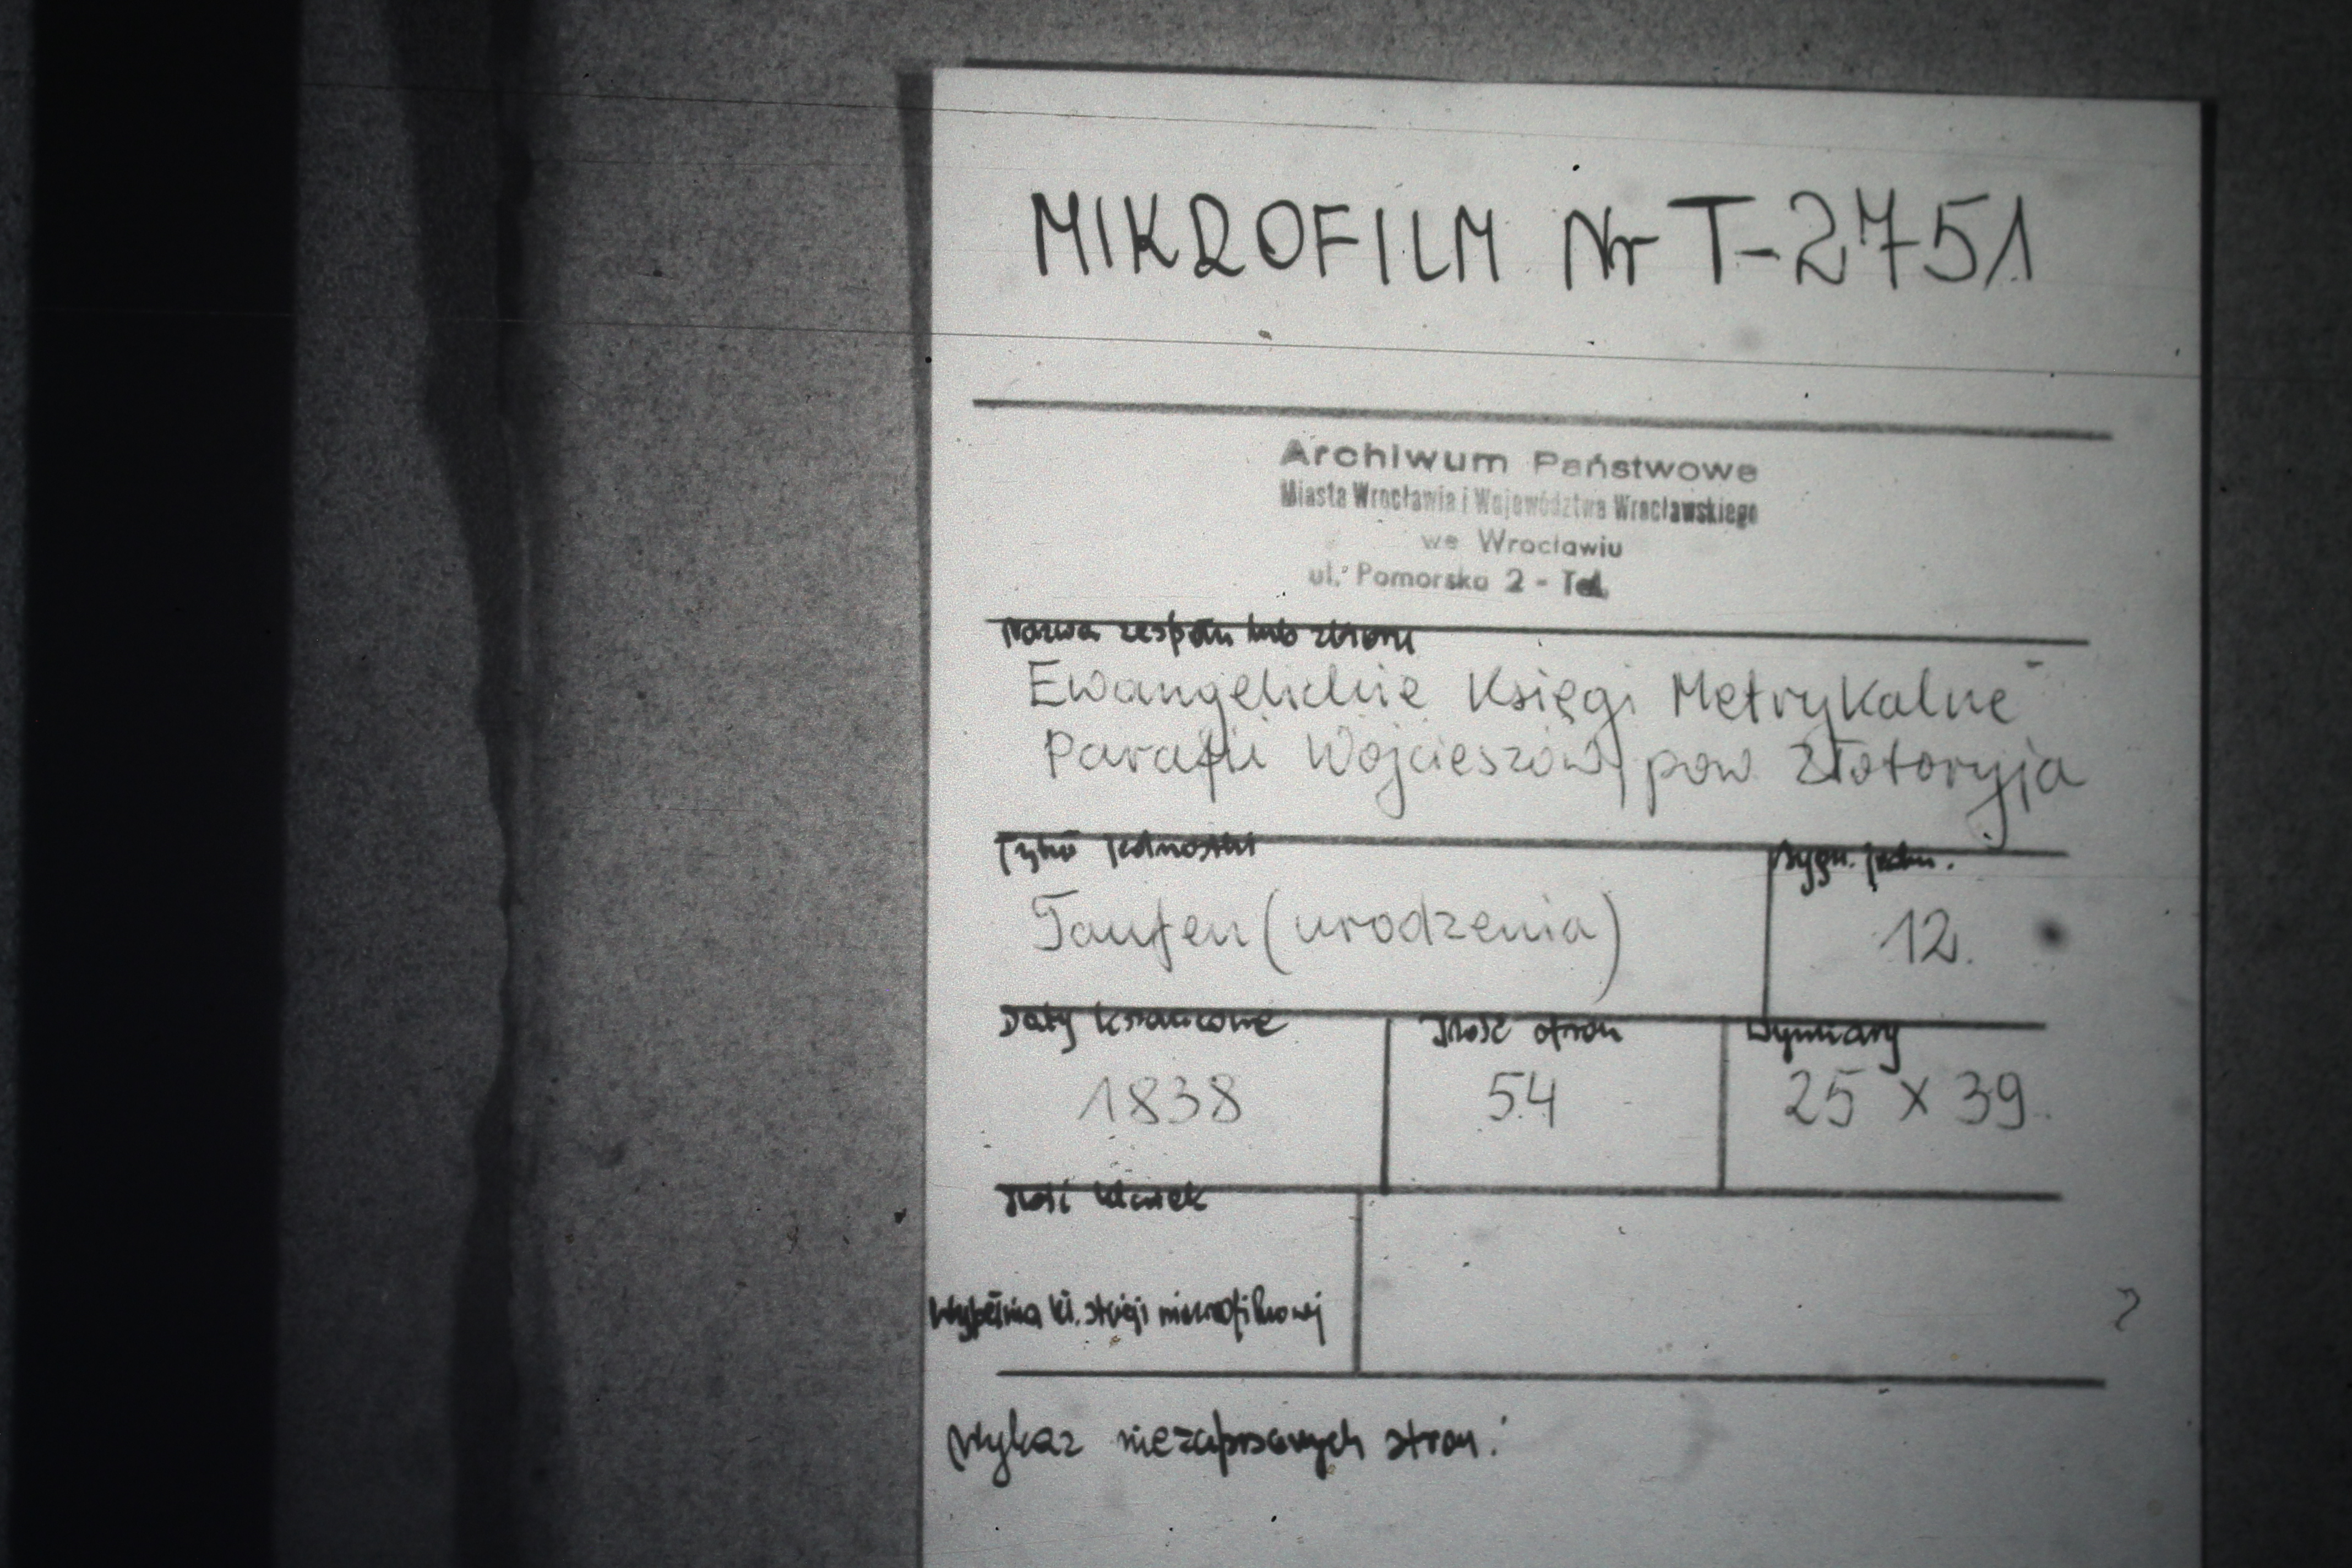 MIKROFILM Nr T-2751
Archiwum Państwowe
Miasta Wrocławia i Województwa Wrocławskiego
we Wrocławiu
ul. Pomorska 2 - Tel.
Nazwa zespołu lub zbioru
Ewangelickie Księgi Metrykalne
Parafii Wojcieszów pow Złotoryja
Tytuł jednostki
Sygn. jedn.
Taufen (urodzenia)
12.
Daty krańcowe
Ilość stron
Wymiary
1838
54
25 x 39
Ilość klatek
Wypełnia kl. stacji mikrofilmowej
Wykaz niezapisanych stron: